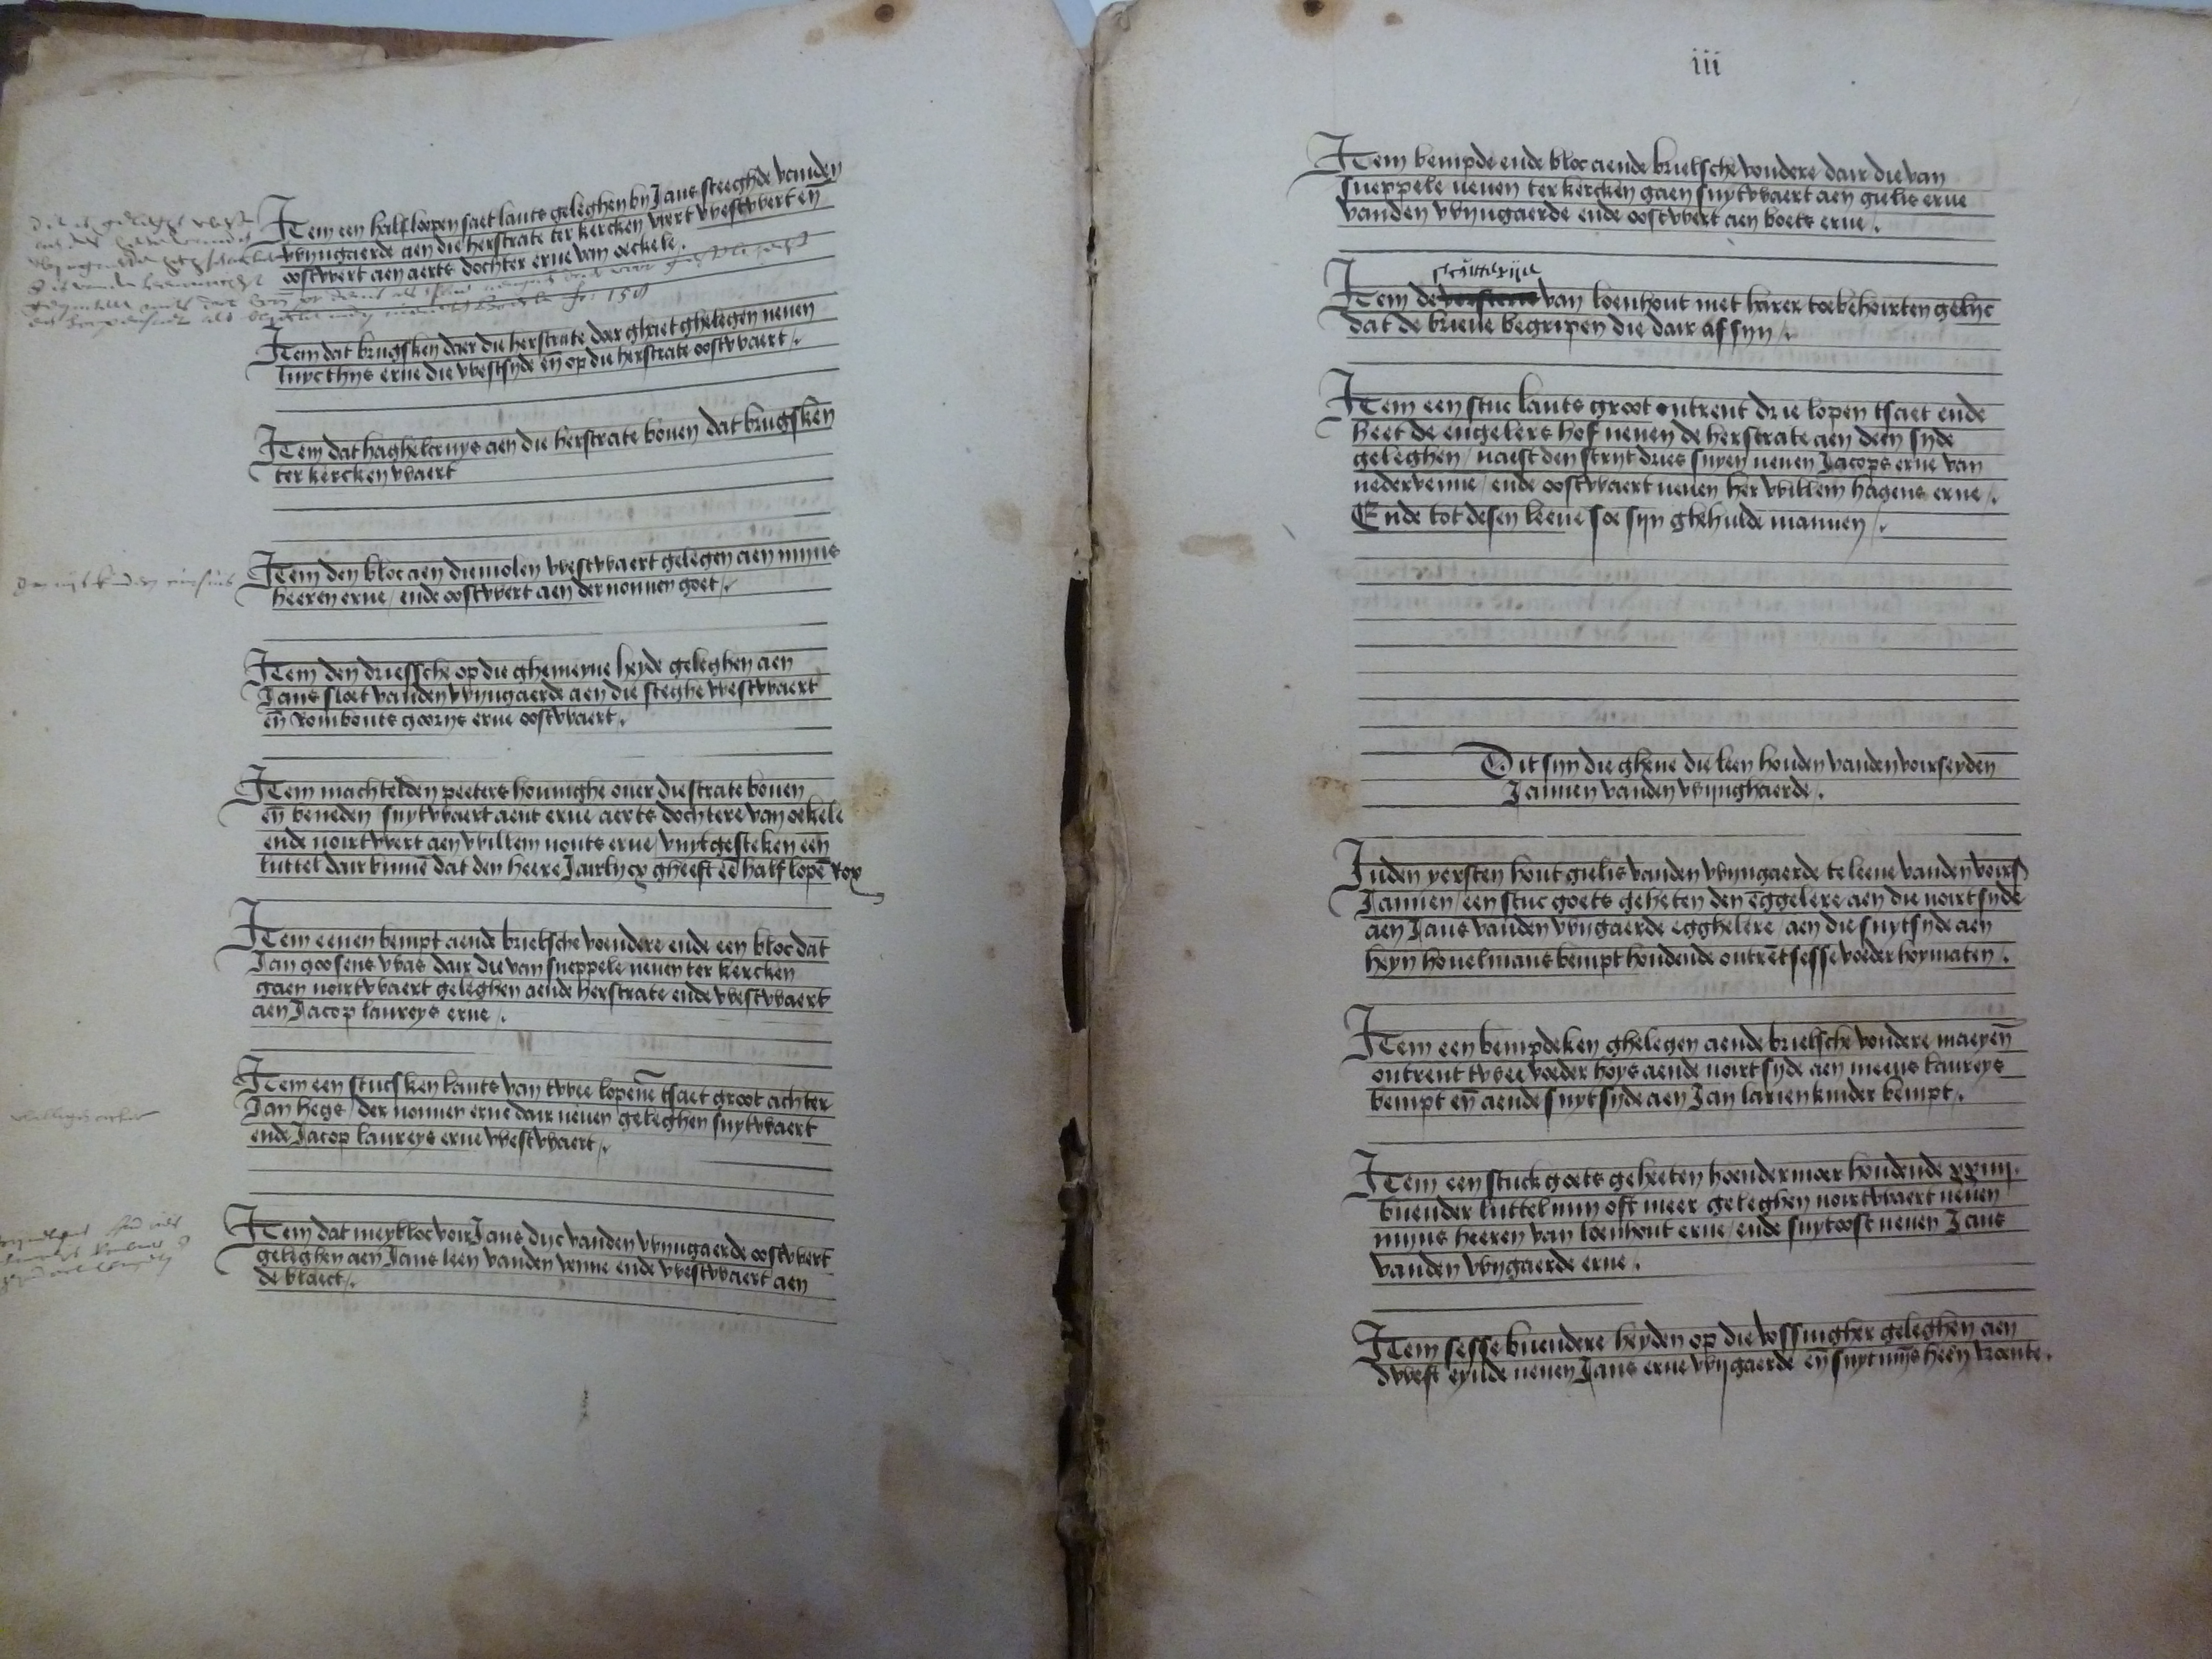 Item een half loopen saet lants geleghen by Jans steeghde vanden
wyngaerde aen die herstrate ter kercken wert westwert en̄
oostwert aen aerts dochter erue van oeckele.
Item dat brugsken daer die herstrate doer ghaet ghelegen neuen
luyc thys erue die westsyde en̄ op die herstrate oostwaert /.
Item dat haghelcruys aen die herstrate bouen dat brugsken
ter kercken waert
Item den bloc aen die molen westwaert gelegen aen myns
heeren erue / ende oostwert aen der nonnen goet /.
Item den driessche op die ghemeyne heyde geleghen aen
Jans sloet vanden wyngaerde aen die steghe westwaert
en̄ Rombouts goorys erue oostwaert.
Item machtelden peeters houinghe ouer die strate bouen
en̄ beneden suytwaert aent erue aerts dochtere van oekele
ende noirtwert aen willem nouts erue / vuytgesteken een
luttel dair binnē dat den heere Jairlycx gheeft eē half lopē Rox
Item eenen bempt aende brielsche voendere ende een bloc dat
Jan goosens was dair die van sneppele neuen ter kercken
gaen noirtwaert geleghen aende herstrate ende westwaert
aen Jacop laureys erue /.
Item een stucsken lants van twee lopenē tsaet groot achter
Jan hegs / der nonnen erue dair neuen geleghen suytwaert
ende Jacop laureys erue westwaert /.
Item dat meybloc voir Jans dyc vanden wyngaerde oostwert
geleghen aen Jans leen vanden venne ende westwaert aen
de vloect /.
iii
Item bempde ende bloc aende brielsche vondere dair die van
sneppele neuen ter kercken gaen suytwaert aen gielis erue
vanden wyngaerde ende oostwert aen boets erue /.
Item de van loenhout met harer toebehoirten gelyc
dat de brieue begripen die dair af syn /.
Item een stuc lants groot ontrent drie lopen tsaet ende
heet de engelers hof neuen de herstrate aen deen syde
geleghen / naest den stryt dries suyen neuen Jacops erue van
nedervenne / ende oostwaert neuen her willem hagens erue /.
Ende tot desen leene soe syn ghehulde mannen /.
Dit syn die ghene die leen houden vanden voirseyden
Jannen vanden wynghaerde.
Inden yersten hout gielis vanden wyngaerde te leene vanden voirs
Jannen / een stuc goets geheten den eggelere aen die noirtsyde
aen Jans vanden wygaerde egghelere / aen die suytsyde aen
heyn houelmans bempt houdende ontrēt sesse voeder hoymaten.
Item een bempdeken ghelegen aende brielsche vondere maeyen̄
ontrent twee voeder hoys aende noirtsyde aen meeus laureys
bempt en̄ aende suytsyde aen Jan larien kinder bempt /.
Item een stuck goets geheeten hoendermoer houdende xxiiii.
buender luttel myn oft meer geleghen noirtwaert neuen
myns heeren van loenhout erue / ende suytoost neuen Jans
vanden wygaerde erue.
Item sesse buendere heyden op die vossingher geleghen aen
dwest eynde neuen Jans erue wygaerde en̄ suyt myns heeŋ vroente.